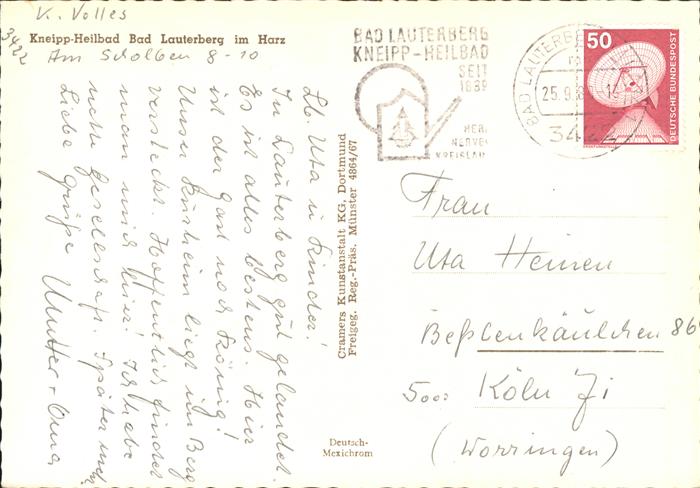 K. Volles
Kneipp-Heilbad Bad Lauterberg im Harz
3422 Am Scholben 8-10
Lb. Uta u Kinder!
In Lauterberg gut gelandet.
Es ist alles bestens. Hier
ist der Gast noch König!
Unser Kurheim liegt im Berg
versteckt. Hoffentlich findet
man mich hier! Ich habe
nette Gesellschaft. Später mehr
Liebe Grüße Mutter + Oma
Cramers Kunstanstalt KG, Dortmund
Freigeg. Reg.-Präs. Münster 4864/67
Deutsch-
Mexichrom
BAD LAUTERBERG
KNEIPP-HEILBAD
SEIT
1839
HERZ
NERVEN
KREISLAU
BAD LAUTERBE
25.9.
3422
50
DEUTSCHE BUNDESPOST
Frau
Uta Heinen
Beßlenkäulchen 86
5000 Köln 71
(Worringen)